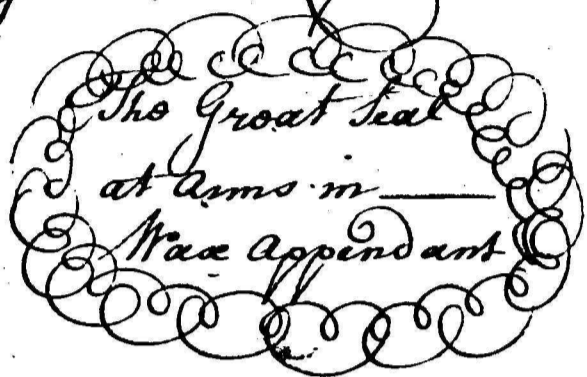 The Great Seal
at Arms in ______
Wax Appendant